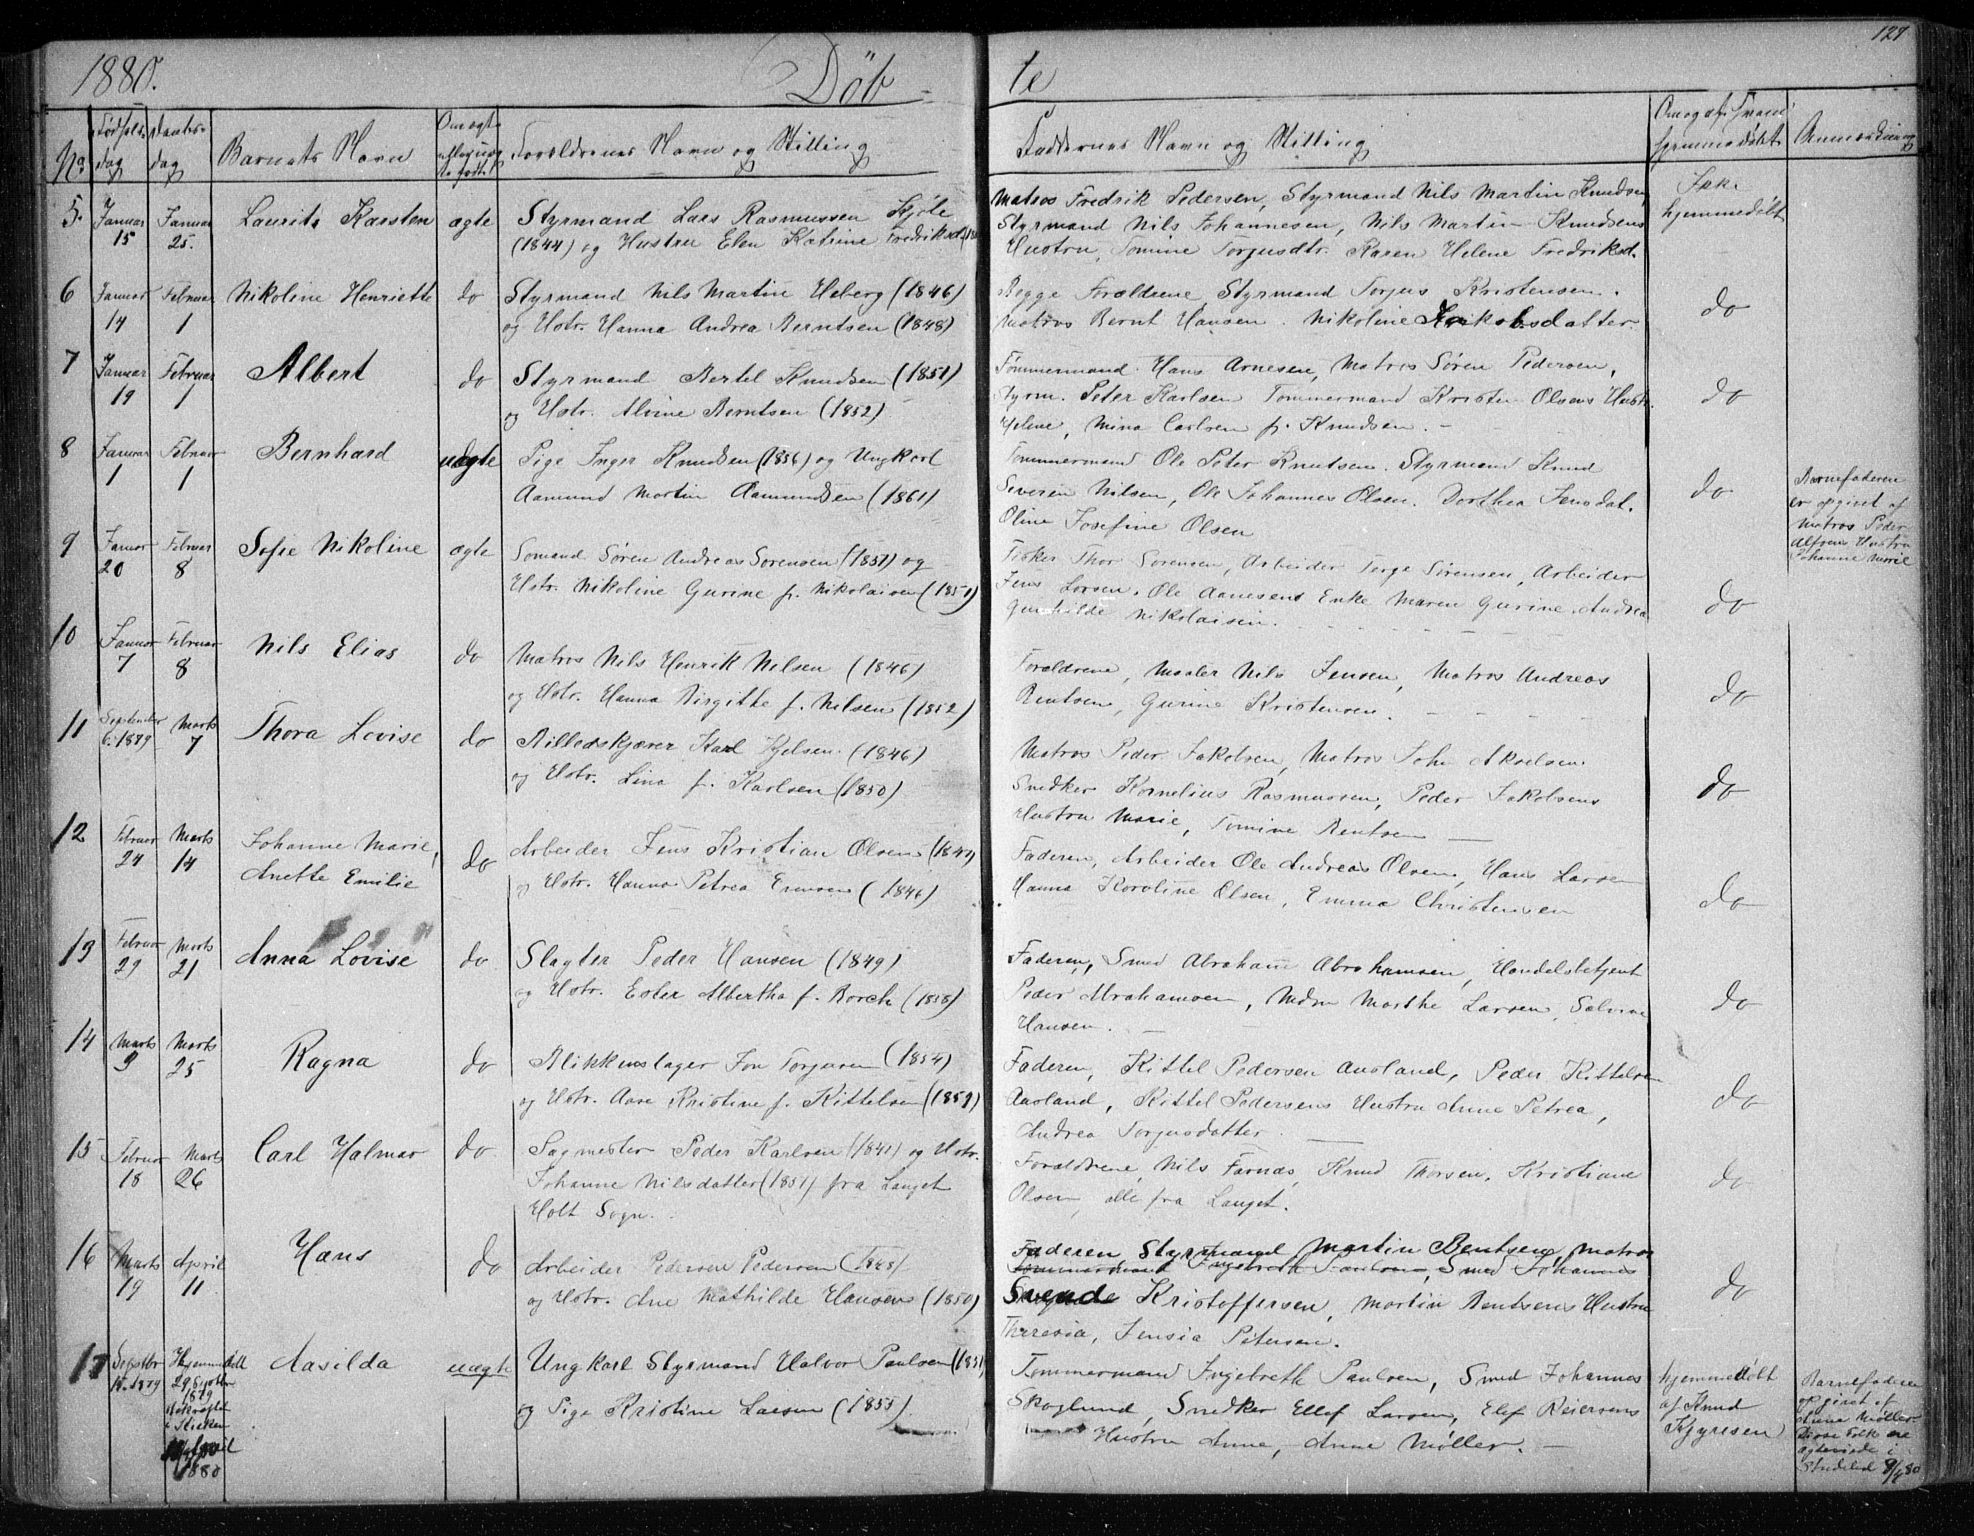 1880.
Döb
te
127
No
Fødsels-
dag
Daabs-
dag
Barnets Navn
Om ægte
eller uæg
te født.
Forældrenes Navn og Stilling
Faddernes Navn og Stilling
Om og af hvem
hjemmedøbt
Anmærkning
5.
Januar
15
Januar
25.
Laurits Karsten
ægte
Styrmand Lars Rasmussen Kjöle
(1844) og Hustru Elen Katrine Fredriksd
Matros Fredrik Pedersen, Styrmand Nils Martin Knudsen,
Styrmand Nils Johannesen, Nils Martin Knudsens
Hustru, Tomine Torjusdtr. Karen Helene Fredriksd.
Ikk.
hjemmedøbt
6
Januar
14
Februar
1
Nikoline Henriette
do
Styrmand Nils Martin Heberg (1846)
og Hstr. Hanna Andrea Berntsen (1848)
Begge Forældrene, Styrmand Torjus Kristensen.
Matros Bernt Hansen. Nikoline Jakobsdatter.
do
7
Januar
19
Februar
1
Albert
do
Styrmand Bertel Knudsen (1851)
og Hstr. Alvine Berntsen (1852)
Tømmermand Hans Arnesen, Matros Søren Pedersen,
Styrm. Peter Karlsen Tømmermand Kristen Olsens Hustr.
Helene, Mina Carlsen f. Knudsen.
do
8
Januar
1
Februar
1
Bernhard
uægte
Pige Inger Knudsen (1856) og Ungkarl
Aamund Martin Aamundsen (1861)
Tømmermand Ole Peter Knutsen. Styrmand Knud
Severin Nilsen, Ole Johannes Olsen. Dorthea Jensdat.
Oline Josefine Olsen
do
Barnefaderen
er opgivet af
Matros Peder
Alfsens Hustru
Johanne Marie
9
Januar
20
Februar
8
Sofie Nikoline
ægte
Sømand Søren Andreas Sørensen (1851) og
Hstr. Nikoline Gurine f. Nikolaisen (1851)
Fisker Thor Sørensen, Arbeider Terje Sørensen, Arbeider
Jens Larsen. Ole Aanesens Enke Maren Gurine. Andrea
Gunhilde Nikolaisen.
do
10
Januar
7
Februar
8
Nils Elias
do
Matros Nils Henrik Nilsen (1846)
og Hstr. Hanna Birgitte f. Nilsen (1852)
Forældrene, Maaler Nils Jensen, Matros Andreas
Bentsen, Gurine Kristensen.
do
11
September
6. 1879
Marts
7
Thora Lovise
do
Billedskjærer Karl Kjelsen. (1846)
og Hstr. Lina f. Karlsen (1850)
Matros Peder Jakobsen, Matros John Akselsen.
Snedker Kornelius Rasmussen, Peder Jakobsens
Hustru Marie, Tomine Bentsen
do
12
Februar
24
Marts
14
Johanne Marie,
Anette Emilie
do
Arbeider Jens Kristian Olsen
og Hstr. Hanna Petrea (1846)
Faderen, Arbeider Ole Andreas Olsen, Hans Larsen
Hanna Karoline Olsen, Emma Christensen
do
13
Februar
29
Marts
21
Anna Lovise
do
Slagter Peder Hansen (1849)
og Hstr. Ester Albertha f. Borch (1858)
Faderen, Smed Abraham Abrahamsen, Handelsbetjent
Peder Abrahamsen, Mdm Marthe Larsen, Salvine
Hansen.
do
14
Marts
3
Marts
25
Ragna
do
Blikkenslager Jon Torjusen (1854)
og Hstr. Aase Kristine f. Kittelsen (1859)
Faderen, Kittel Pedersen Aasland, Peder Kittelsen
Aasland, Kittel Pedersens Hustru Anne Petrea,
Andrea Torjusdatter.
do
15
Februar
18
Marts
26
Carl Halmar
do
Sagmester Peder Karlsen (1841) og Hstr.
Johanne Nilsdatter (1851) fra Langet
Holt Sogn.
Forældrene, Nils Farnæs, Knud Thorsen, Kristiane
Olsen, alle fra Langet.
do
16
Marts
19
April
11
Hans
do
Arbeider Pedersen Pedersen (1848)
og Hstr. Ane Mathilde Hansen (1850)
Faderen Styrmand Martin Bentsen, Matros
Tømmermand Ingebreth Paulsen, Smed Johannes
Svende Kristoffersen, Martin Bentsens Hustru
Theresia, Jensia Petersen.
do
17
Septbr
1879
Hjemmedøbt
29 Septbr
1879
i Kirken
April
1880
Aasilda
uægte
Ungkarl Styrmand Halvor Paulsen (1851)
og Pige Kristine Larsen (1855)
Tømmermand Ingebreth Paulsen, Smed Johannes
Skoglund, Snedker Ellef Larsen, Elef Reiersens
Hustru Anne, Anne Møller.
hjemmedøbt
af Knud
Gjeresen
Barnefaderen
opgivet af
Anna Møller.
Disse Folk ere
ægteviede i